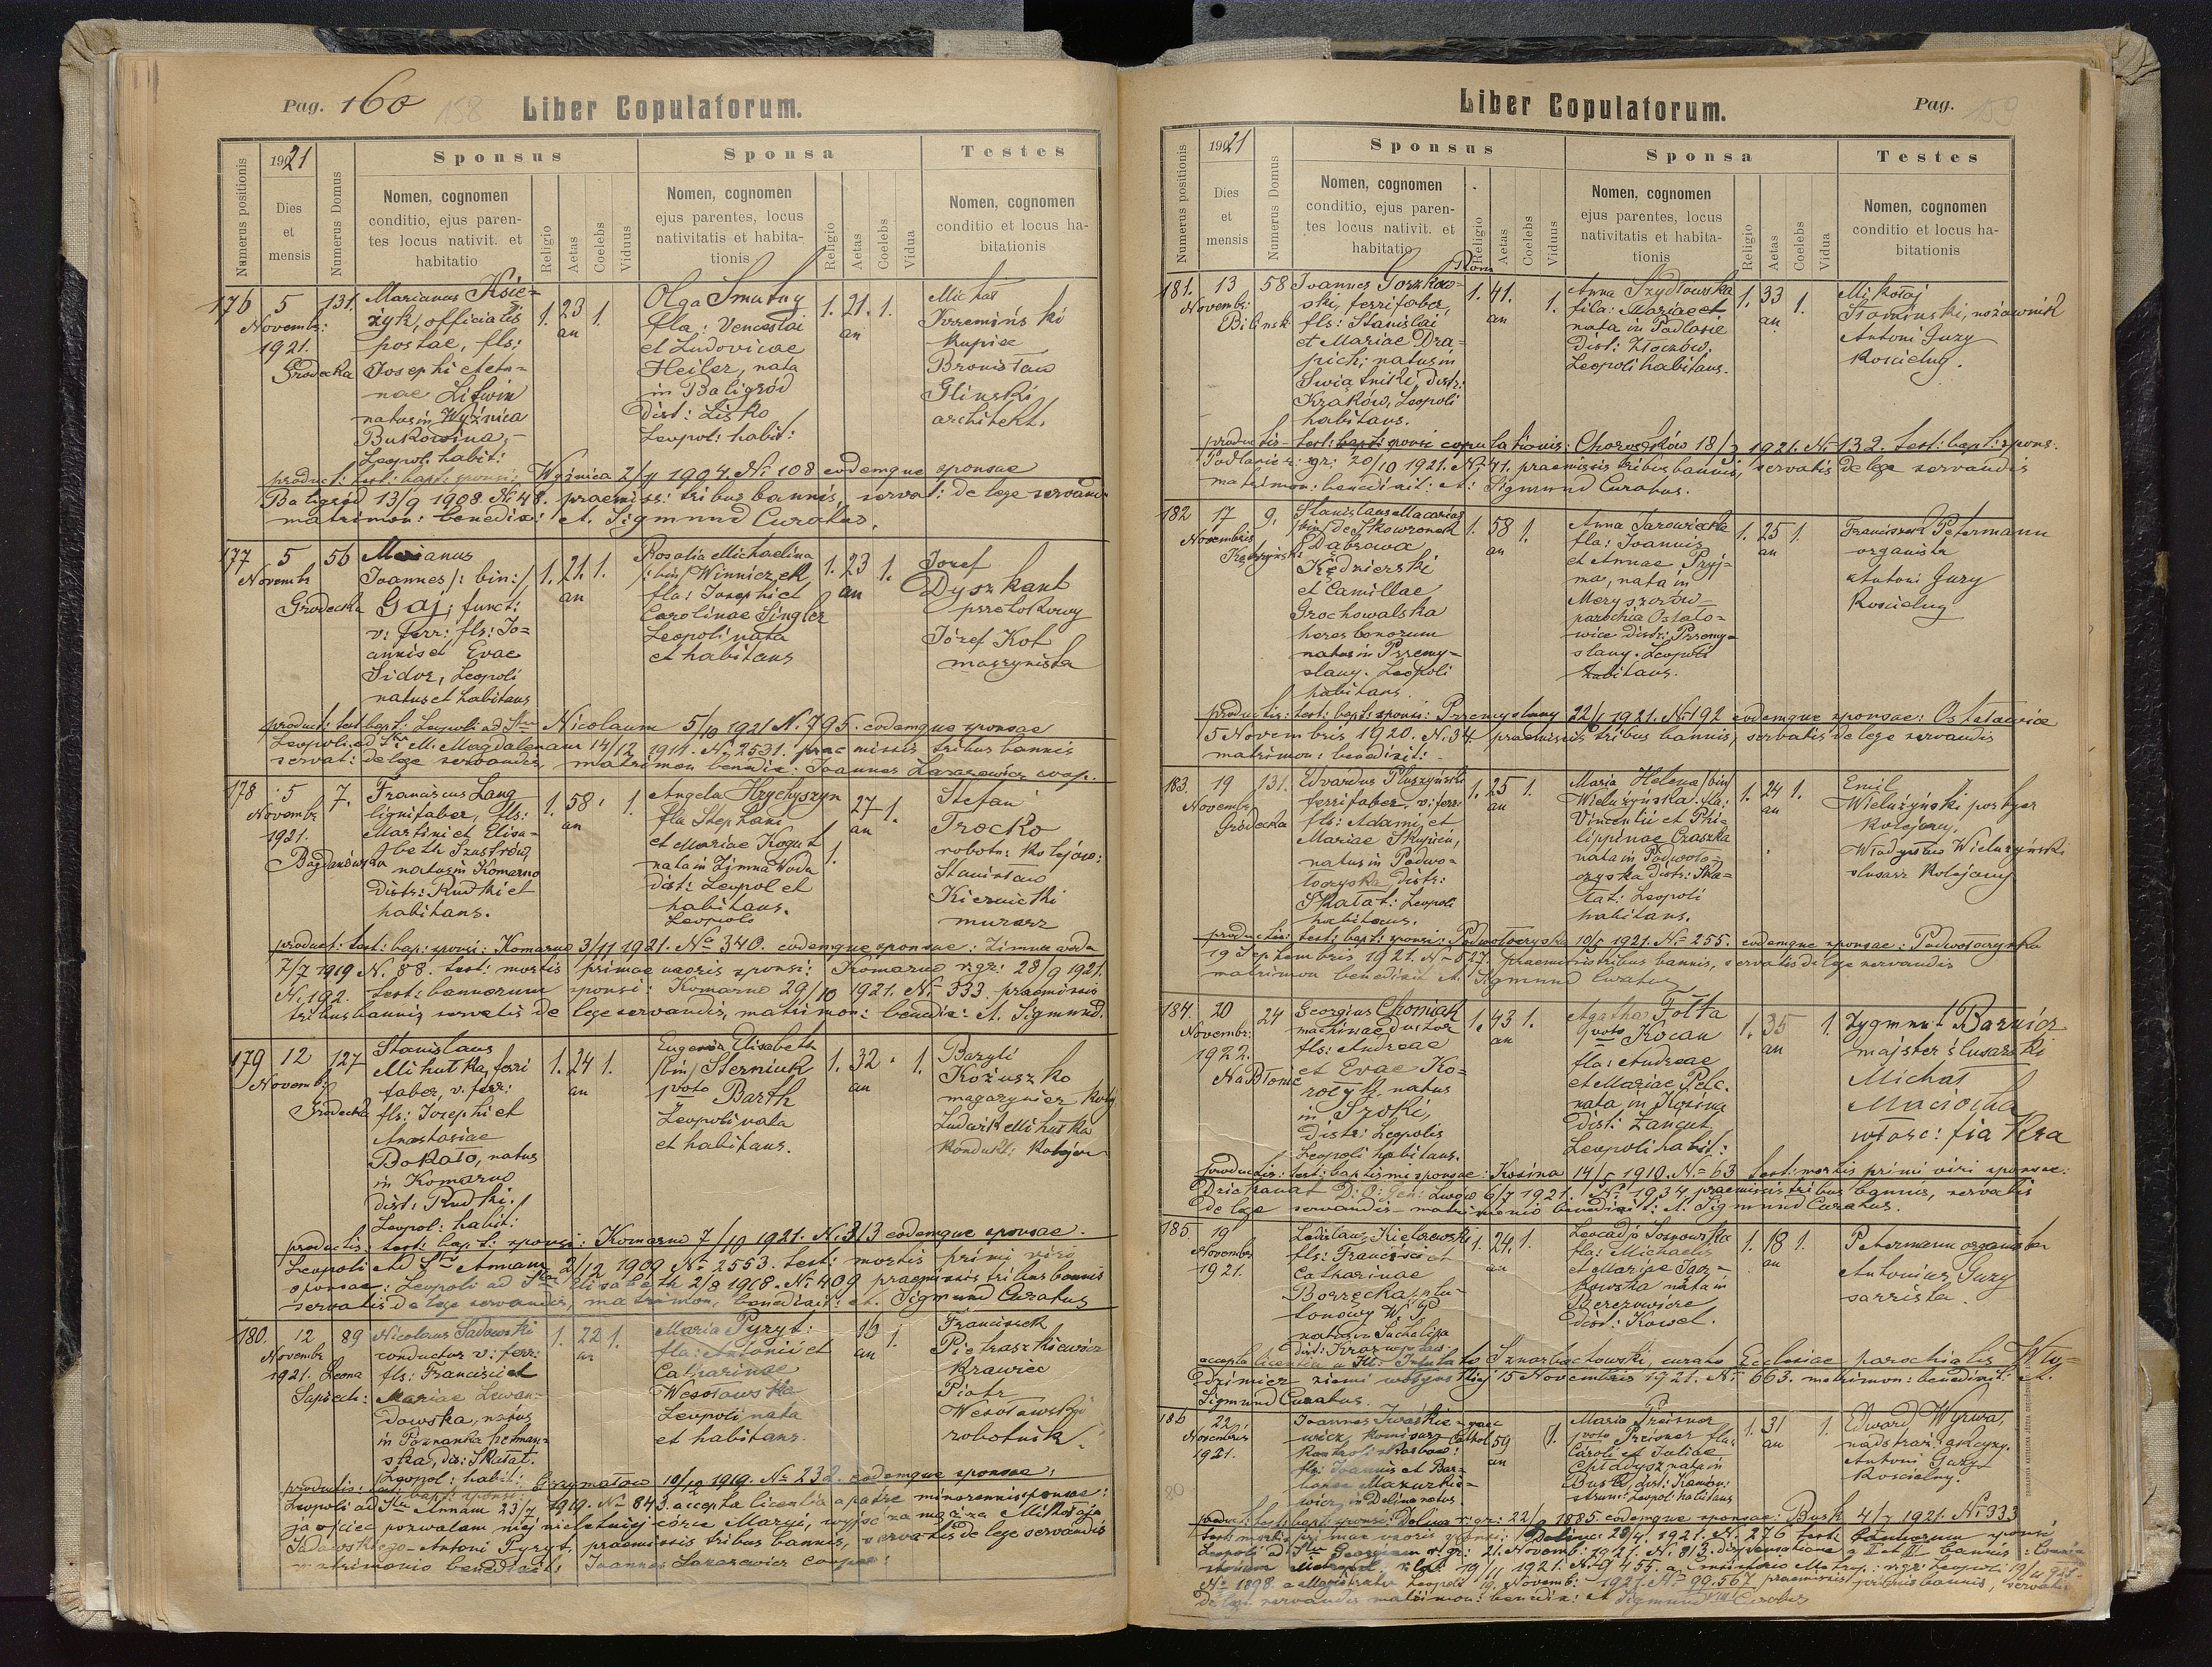 Pag. 160 158
Liber Copulatorum.
Numerus positionis
1921
Dies
et
mensis
Numerus Domus
Sponsus
Nomen, cognomen
conditio, ejus paren-
tes locus nativit. et
habitatio
Religio
Aetas
Coelebs
Viduus
Sponsa
Nomen, cognomen
ejus parentes, locus
nativitatis et habita-
tionis
Religio
Aetas
Coelebs
Vidua
Testes
Nomen, cognomen
conditio et locus ha-
bitationis
176
5
Novembr:
1921.
Grodecka
131.
Marianus Księ-
żyk, officialis
postae, fls:
Josephi et An-
nae Litwin
natus in Wyżnica
Bukowina,-
Leopol: habit:
1. 23 an 1.
Olga Smutny
fla: Venceslai
et Ludovicae
Heiler, nata
in Baligród
dist: Lisko
Leopol: habit:
1. 21. an 1.
Michał
Krzemiński
kupiec
Bronisław
Glinski
architekt.
product: test: bapt: sponsi: Wyżnica 2/4 1904 N: 108 eodemque sponsae
Baligród 13/9 1908 N: 48. praemiss: tribus bannis, servat: de lege servand:
matrimon: benedix: A. Sigmund Curatus.
177
5
Novembr
Grodecka
56
Marianus
Joannes /: bin:/
Gaj; funct:
v: ferr: fls: Jo-
annis et Evae
Sidor, Leopoli
natus et habitans
1. 21. an 1.
Rosalia Michaelina
/:bin/ Winniczek
fla: Josephi et
Carolinae Singler
Leopoli nata
et habitans
1. 23 an 1.
Jozef
Dyszkant
przetokowy
Józef Kot
maszynista
product: test: bapt: Leopoli ad Stum Nicolaum 5/10 1921 N. 795. eodemque sponsae
Leopoli ad S. M. Magdalenam 14/12 1914. N. 2531. praemissis tribus bannis
servat: de lege servandis, matrimon benedix: Joannes Lazarewicz coop.
178
5
Novembr
1921.
Bogdanówka
7.
Franciscus Lang
lignifaber, fls:
Martini et Elisa-
beth Szustrów
natus in Komarno
Distr: Rudki et
habitans.
1. 58 an 1.
Angela Hrychyszyn
fla Stephani
et Mariae Kogut
nata in Zimna Woda
dist: Leopol et
habitans.
Leopoli
27 an 1.
1.
Stefan
Trocko
robotn: kolejow:
Stanisław
Kiernicki
murarz
product: test: bap: sponsi: Komarno 3/11 1921. No 340. eodemque sponsae: Zimna woda
7/7 1919 N. 88. test: mortis primae uxoris sponsi: Komarno r.gr: 28/9 1921.
N. 192. test: bannorum sponsi: Komarno 29/10 1921. N: 333. praemissis
tribus bannis servatis de lege servandis, matrimon: benedix: A. Sigmund.
179
12
Novemb:
Grodecka
127
Stanislaus
Mihutka, ferri
faber, v. ferr:
fls: Josephi et
Anastasiae
Bokalo, natus
in Komarno
dist: Rudki.
Leopol: habit:
1. 24 an 1.
Eugenia Elisabeth
/bin/ Sterniuk
1 voto Barth
Leopoli nata
et habitans.
1. 32 an 1.
Bazyli
Kożuszko
magazynier kolej
Ludwik Mihutka
kondukt: kolejow
productis: test: bapt: sponsi: Komarno 7/10 1921. N. 313 eodemque sponsae.
Leopoli Ad Stam Annam 2/12 1909 N: 2553. test: mortis primi viri
sponsae: Leopoli ad Stam Elisabeth 2/8 1918. N: 409 praemissis tribus bannis
servatis de lege servandis, matrimon. benedixit: A. Sigmund Curatus
180.
12
Novembr
1921. Leona
Sapieh:
89
Nicolaus Sadowski
conductor v: ferr:
fls: Francisci et
Mariae Lewan-
dowska, natus
in Poznanka hetman-
ska, dis: Skałat.
Leopol: habit:
1. 22 an 1.
Maria Pyryt:
fla: Antonii et
Catharinae
Wesołowska
Leopoli nata
et habitans.
16 an 1.
Franciszek
Pietraszkiewicz
krawiec
Piotr
Wesołowski
robotnik.
productis: test: bapt: sponsi: Grzymałow 10/12 1919. No 232. eodemque sponsae:
Leopoli ad Stam Annam 23/7 1919. No 843. accepta licentia a patre minorennis sponsae:
ja ojciec pozwalam mej nieletniej córce Maryi, wyjść za mąż za Mikołaja
Sadowskiego- Antoni Pyryt, praemissis tribus bannis, servatis de lege servandis
matrimonio benedixit: Joannes Lazarewicz cooper:
Liber Copulatorum.
Pag. 159
Numerus positionis
1921
Dies
et
mensis
Numerus Domus
Sponsus
Nomen, cognomen
conditio, ejus paren-
tes locus nativit. et
habitatio
Religio
Aetas
Coelebs
Viduus
Sponsa
Nomen, cognomen
ejus parentes, locus
nativitatis et habita-
tionis
Religio
Aetas
Coelebs
Vidua
Testes
Nomen, cognomen
conditio et locus ha-
bitationis
181.
13
Novembr:
Bilinsk:
58
Joannes Gorzkow-
ski, ferrifaber,
fls: Stanislai
et Mariae Dra-
pich; natus in
Swiątniki, distr:
Kraków, Leopoli
habitans.
Rom
1. 41. an 1.
Anna Szydłowska
fila: Mariae et
nata in Podlasie
Dist: Złoczów.
Leopoli habitans.
1. 33 an 1.
Mikołaj
nożownik
Antoni Guzy
Koscielny.
productis test: bapt: sponsi copulationis: Chorostków 18/3 1921. N: 132. test: bapt: spons.
Podlasie r: gr: 20/10 1921. N: 41. praemissis tribus bannis, servatis de lege servandis
matrimon: benedixit: A: Sigmund Curatus.
182
17
Novembris
9.
Stanislaus Macarius
/bin/ de Skowronek
Dąbrowa
Kędzierski
et Camillae
Grochowalska
heres bonorum
natus in Przemy-
slany. Leopoli
habitans.
1. 58 an 1.
Anna Jarowicka
fla: Joannis
et Annae Pryj-
ma, nata in
Meryszczów-
parochia Ostało-
wice distr: Przemy-
slany. Leopoli
habitans.
1. 25 an 1.
Franciszek Petermann
organista
Antoni Guzy
Koscielny
productis: test: bapt: sponsi: Przemyslany 22/1 1921. N: 192 eodemque sponsae: Ostałowice
5 Novembris 1920. N. 34. praemissis tribus bannis, servatis de lege servandis
matrimon: benedixit:
183.
19
Novembr
Gródecka
131.
Edvardus Pluszyński
ferrifaber v: ferr:
fls: Adami et
Mariae Skupień,
natus in Podwo-
łoczyska, distr:
Skałat: Leopoli
habitans.
1. 25 an 1.
Maria Helena /bin/
Wieluzyńska. fla:
Vincentii et Phi-
lippinae Czaszka
nata in Podwoło-
czyska distr: Ska-
łat: Leopoli
habitans.
1. 24 an 1.
Emil
Wieluzyński portyer
Kolejowy.
Władysław Wieluzyński
slusarz Kolejowy
productis: test: bapt: sponsi: Podwołoczyska 10/5 1921. N= 255. eodemque sponsae: Podwołoczyska
19 Septembris 1921. N= 527. praemissis tribus bannis, servatis de lege servandis
matrimon benedixit A. Sigmund Curatus
184.
20
Novembr:
1922.
Na Błonie
24
Georgius Choniak
machinae ductor
fls: Andreae
et Evae Ko-
natus
in Sroki,
Distr: Leopolis
Leopoli habitans.
1. 43 an 1.
Agatha Fołta
1 voto Kocan
fla: Andreae
et Mariae Pelc.
nata in Kosina
Dist: Łancut
Leopoli habit:
1. 35 an 1.
Zygmunt Barnicz
majster ślusarski
Michał
Maciocha
własc: fiakra
productis: test: baptismi sponsae: Kosina 14/5 1910. N= 63 test: mortis primi viri sponsae:
Dziekanat D: O: Gen: Lwów 6/7 1921. N= 1934 praemissis tribus bannis, servatis
de lege servandis matrimonio benedixit: A. Sigmund Curatus.
185
19
Novembr
1921.
Ladislaus Kielczewski
fls: Francisci et
Catharinae
Borzęcka, plu-
tonowy W. P
natus in Suchalipa
dist: Krasnystaw
1. 24. an 1.
Leocadja Sosnowska
fla: Michaelis
et Mariae Jaor-
kowska nata in
Berezowicze
dist: Kowel.
1. 18 an 1.
Petermann organista
Antonius Guzy
sacrista.
accepta licentia a Rl. Infulato Sznarbachowski, curato Ecclesiae parochialis Wło-
dzimierz ziemi wołyńskiej 15 Novembris 1921. N: 663. matrimon: benedixit: A.
Sigmund Curatus.
186
22
Novembris
1921.
Joannes Iwaśkie-
wicz, komisarz
kontroli skarbow:
fls: Joannis et Bar-
barae Mazurkie-
wicz, in Dolina natus.
graec
Cathol 59 an 1.
Maria Preisner
1 voto Preisner fla:
Caroli et Juliae
Chładysz nata in
Busk, dist: Kamion:
strum: Leopol habitans
1. 31 an 1.
Edward Wyrwa,
Antoni Guzy
Koscielny.
product: test: bapt: sponsi: Dolina r: gr: 22/9 1885 eodemque sponsae: Busk 4/7 1921. N: 333
test: mortis primae uxoris sponsi: Dolina 28/4. 1921. N. 276 test: bannorum sponsi
Leopoli ad Stum Georgium r: gr: 21. Novemb: 1921. N. 813. dispensatione a II et III bannis:
19/11 1921. N: 9455.
N= 1898. a Magistratu Leopoli 19. Novemb: 1921. N: 99.567 praemissis primis bannis, servatis
de lege servandis matrimon: benedix: A Sigmund Curatus